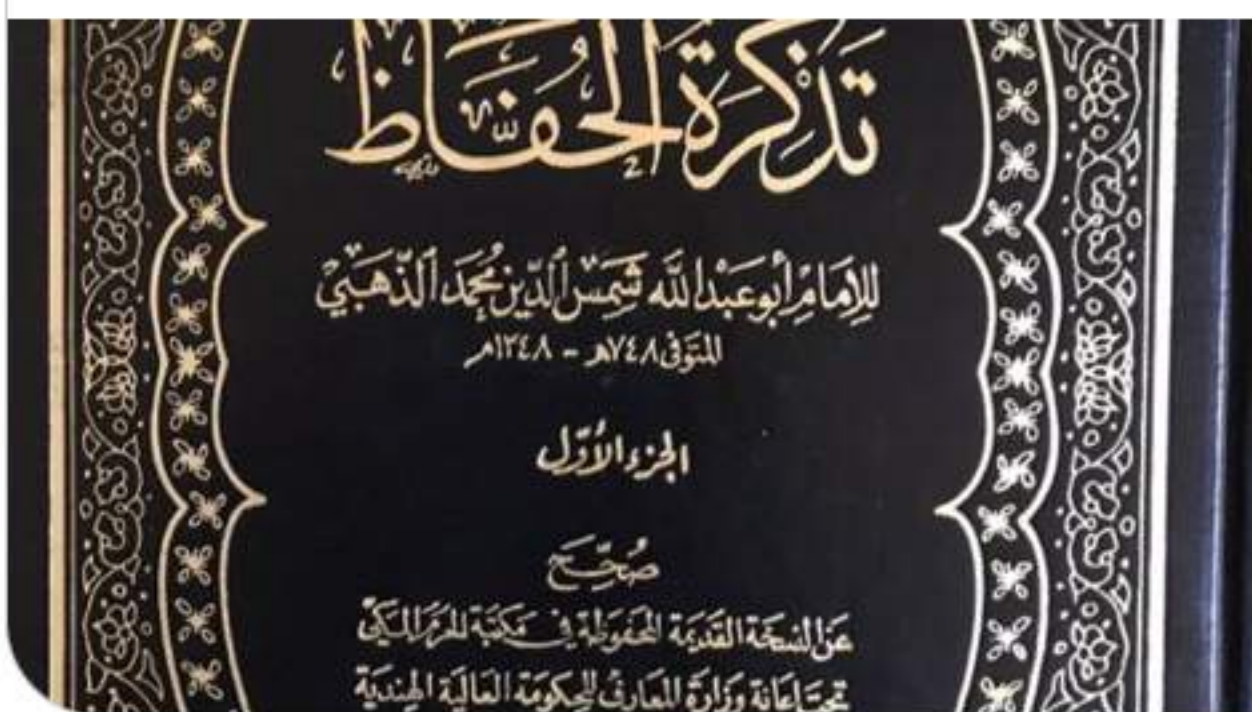 تذكرة الحفاظ
للإمام أبو عبد الله شمس الدين محمد الذهبي
المتوفى ٧٤٨هـ - ١٣٤٨م
الجزء الأول
صحح
عن النسخة القديمة المحفوظة في مكتبة الحرم المكي
تحت اعانة وزارة المعارف للحكومة العالية الهندية